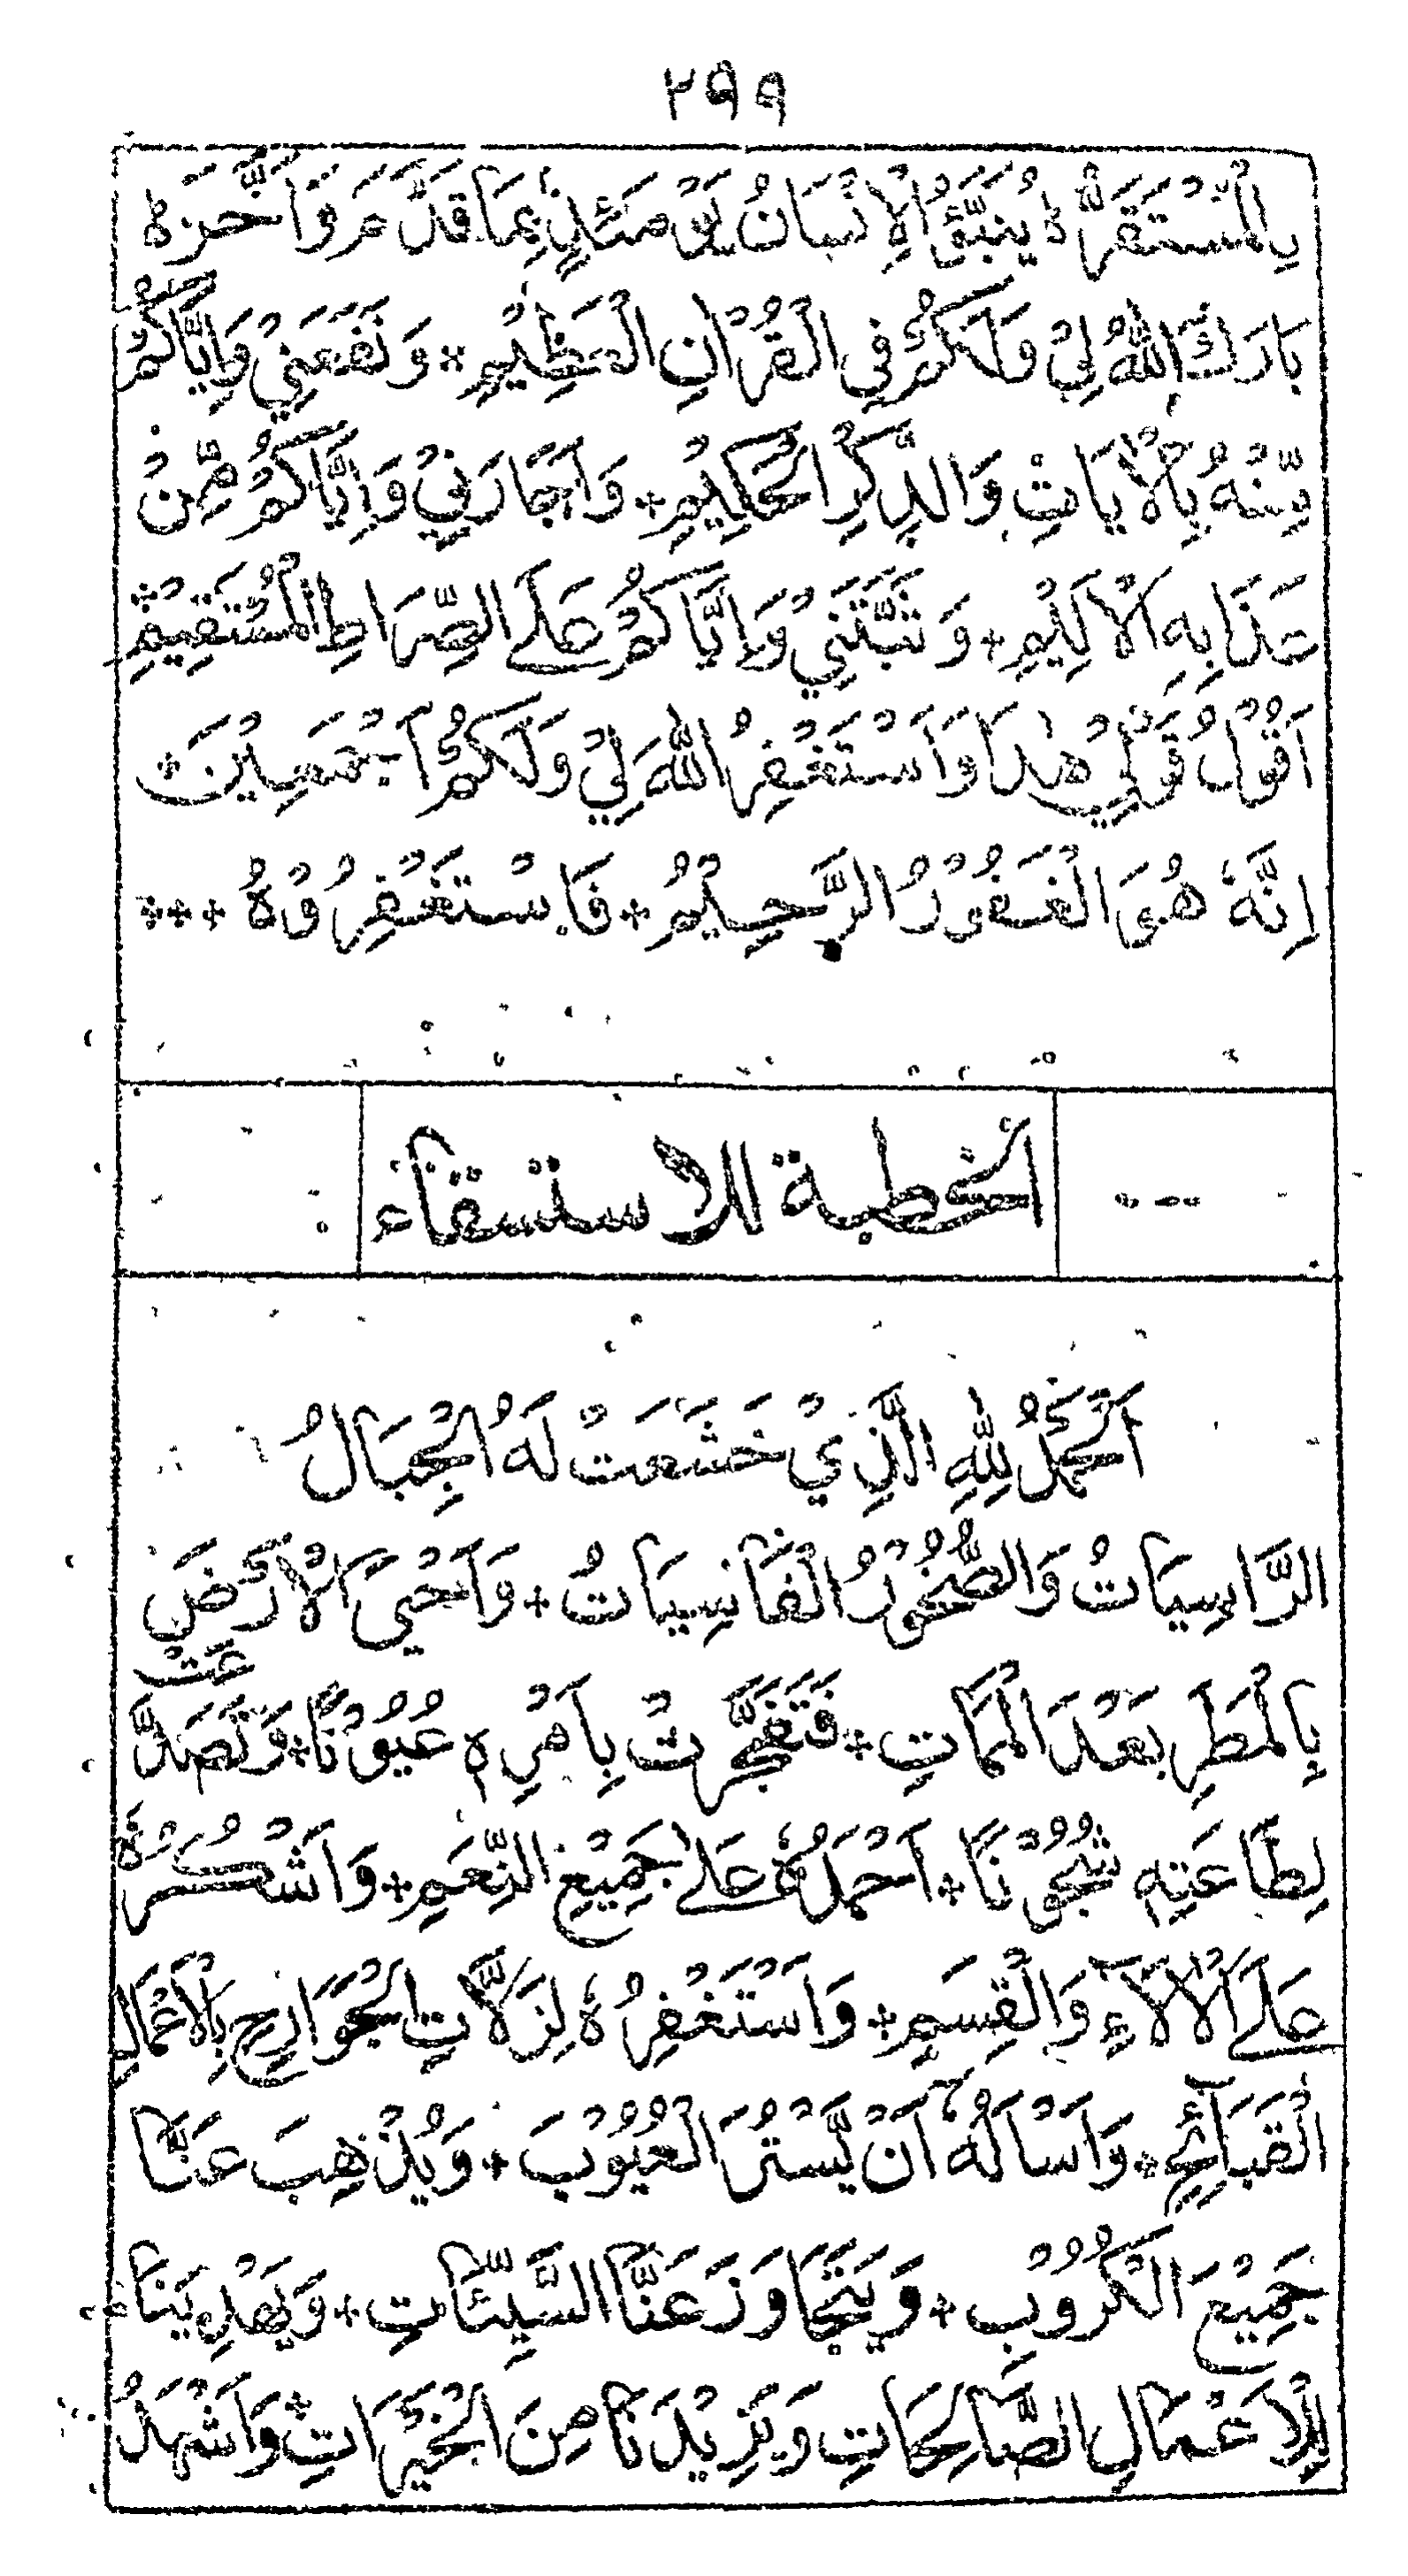 ٢٩٩
بِالْمُسْتَقَرُّ ۞ يُنَبَّؤُ الْاِنْسَانُ يَوْمَئِذٍ بِمَا قَدَّمَ وَاَخَّرَ ۞
بَارَكَ اللّٰهُ لِيْ وَلَكُمْ فِي الْقُرْاٰنِ الْعَظِيْمِ * وَنَفَعَنِيْ وَاِيَّاكُمْ
مِّنْهُ بِالْاٰيَاتِ وَالذِّكْرِ الْحَكِيْمِ * وَاَجَارَنِيْ وَاِيَّاكُمْ مِّنْ
عَذَابِهِ الْاَلِيْمِ * وَثَبَّتَنِيْ وَاِيَّاكُمْ عَلَى الصِّرَاطِ الْمُسْتَقِيْمِ *
اَقُوْلُ قَوْلِيْ هٰذَا وَاَسْتَغْفِرُ اللّٰهَ لِيْ وَلَكُمْ اَجْمَعِيْنَ *
اِنَّهٗ هُوَ الْغَفُوْرُ الرَّحِيْمُ * فَاسْتَغْفِرُوْهُ ***
الخطبة للاستسقاء
اَلْحَمْدُ لِلّٰهِ الَّذِيْ خَشَعَتْ لَهُ الْجِبَالُ
الرَّاسِيَاتُ وَالصُّخُوْرُ الْقَاسِيَاتُ * وَاَحْيَى الْاَرْضَ
بِالْمَطَرِ بَعْدَ الْمَمَاتِ * فَتَفَجَّرَتْ بِاَمْرِهٖ عُيُوْنًا * وَتَصَدَّعَتْ
لِطَاعَتِهٖ شُجُوْنًا * اَحْمَدُهٗ عَلٰى جَمِيْعِ النِّعَمِ * وَاَشْكُرُهٗ
عَلَى الْاٰلَاۤءِ وَالْقِسَمِ * وَاَسْتَغْفِرُهٗ لِزَلَّاتِ الْجَوَارِحِ بِالْاَعْمَالِ
الْقَبَاۤئِحِ * وَاَسْاَلُهٗ اَنْ يَّسْتُرَ الْعُيُوْبَ * وَيُذْهِبَ عَنَّا
جَمِيْعَ الْكُرُوْبِ * وَيَتَجَاوَزَ عَنَّا السَّيِّئَاتِ * وَيَهْدِيَنَا
لِلْاَعْمَالِ الصَّالِحَاتِ وَيَزِيْدَنَا مِنَ الْخَيْرَاتِ * وَاَشْهَدُ